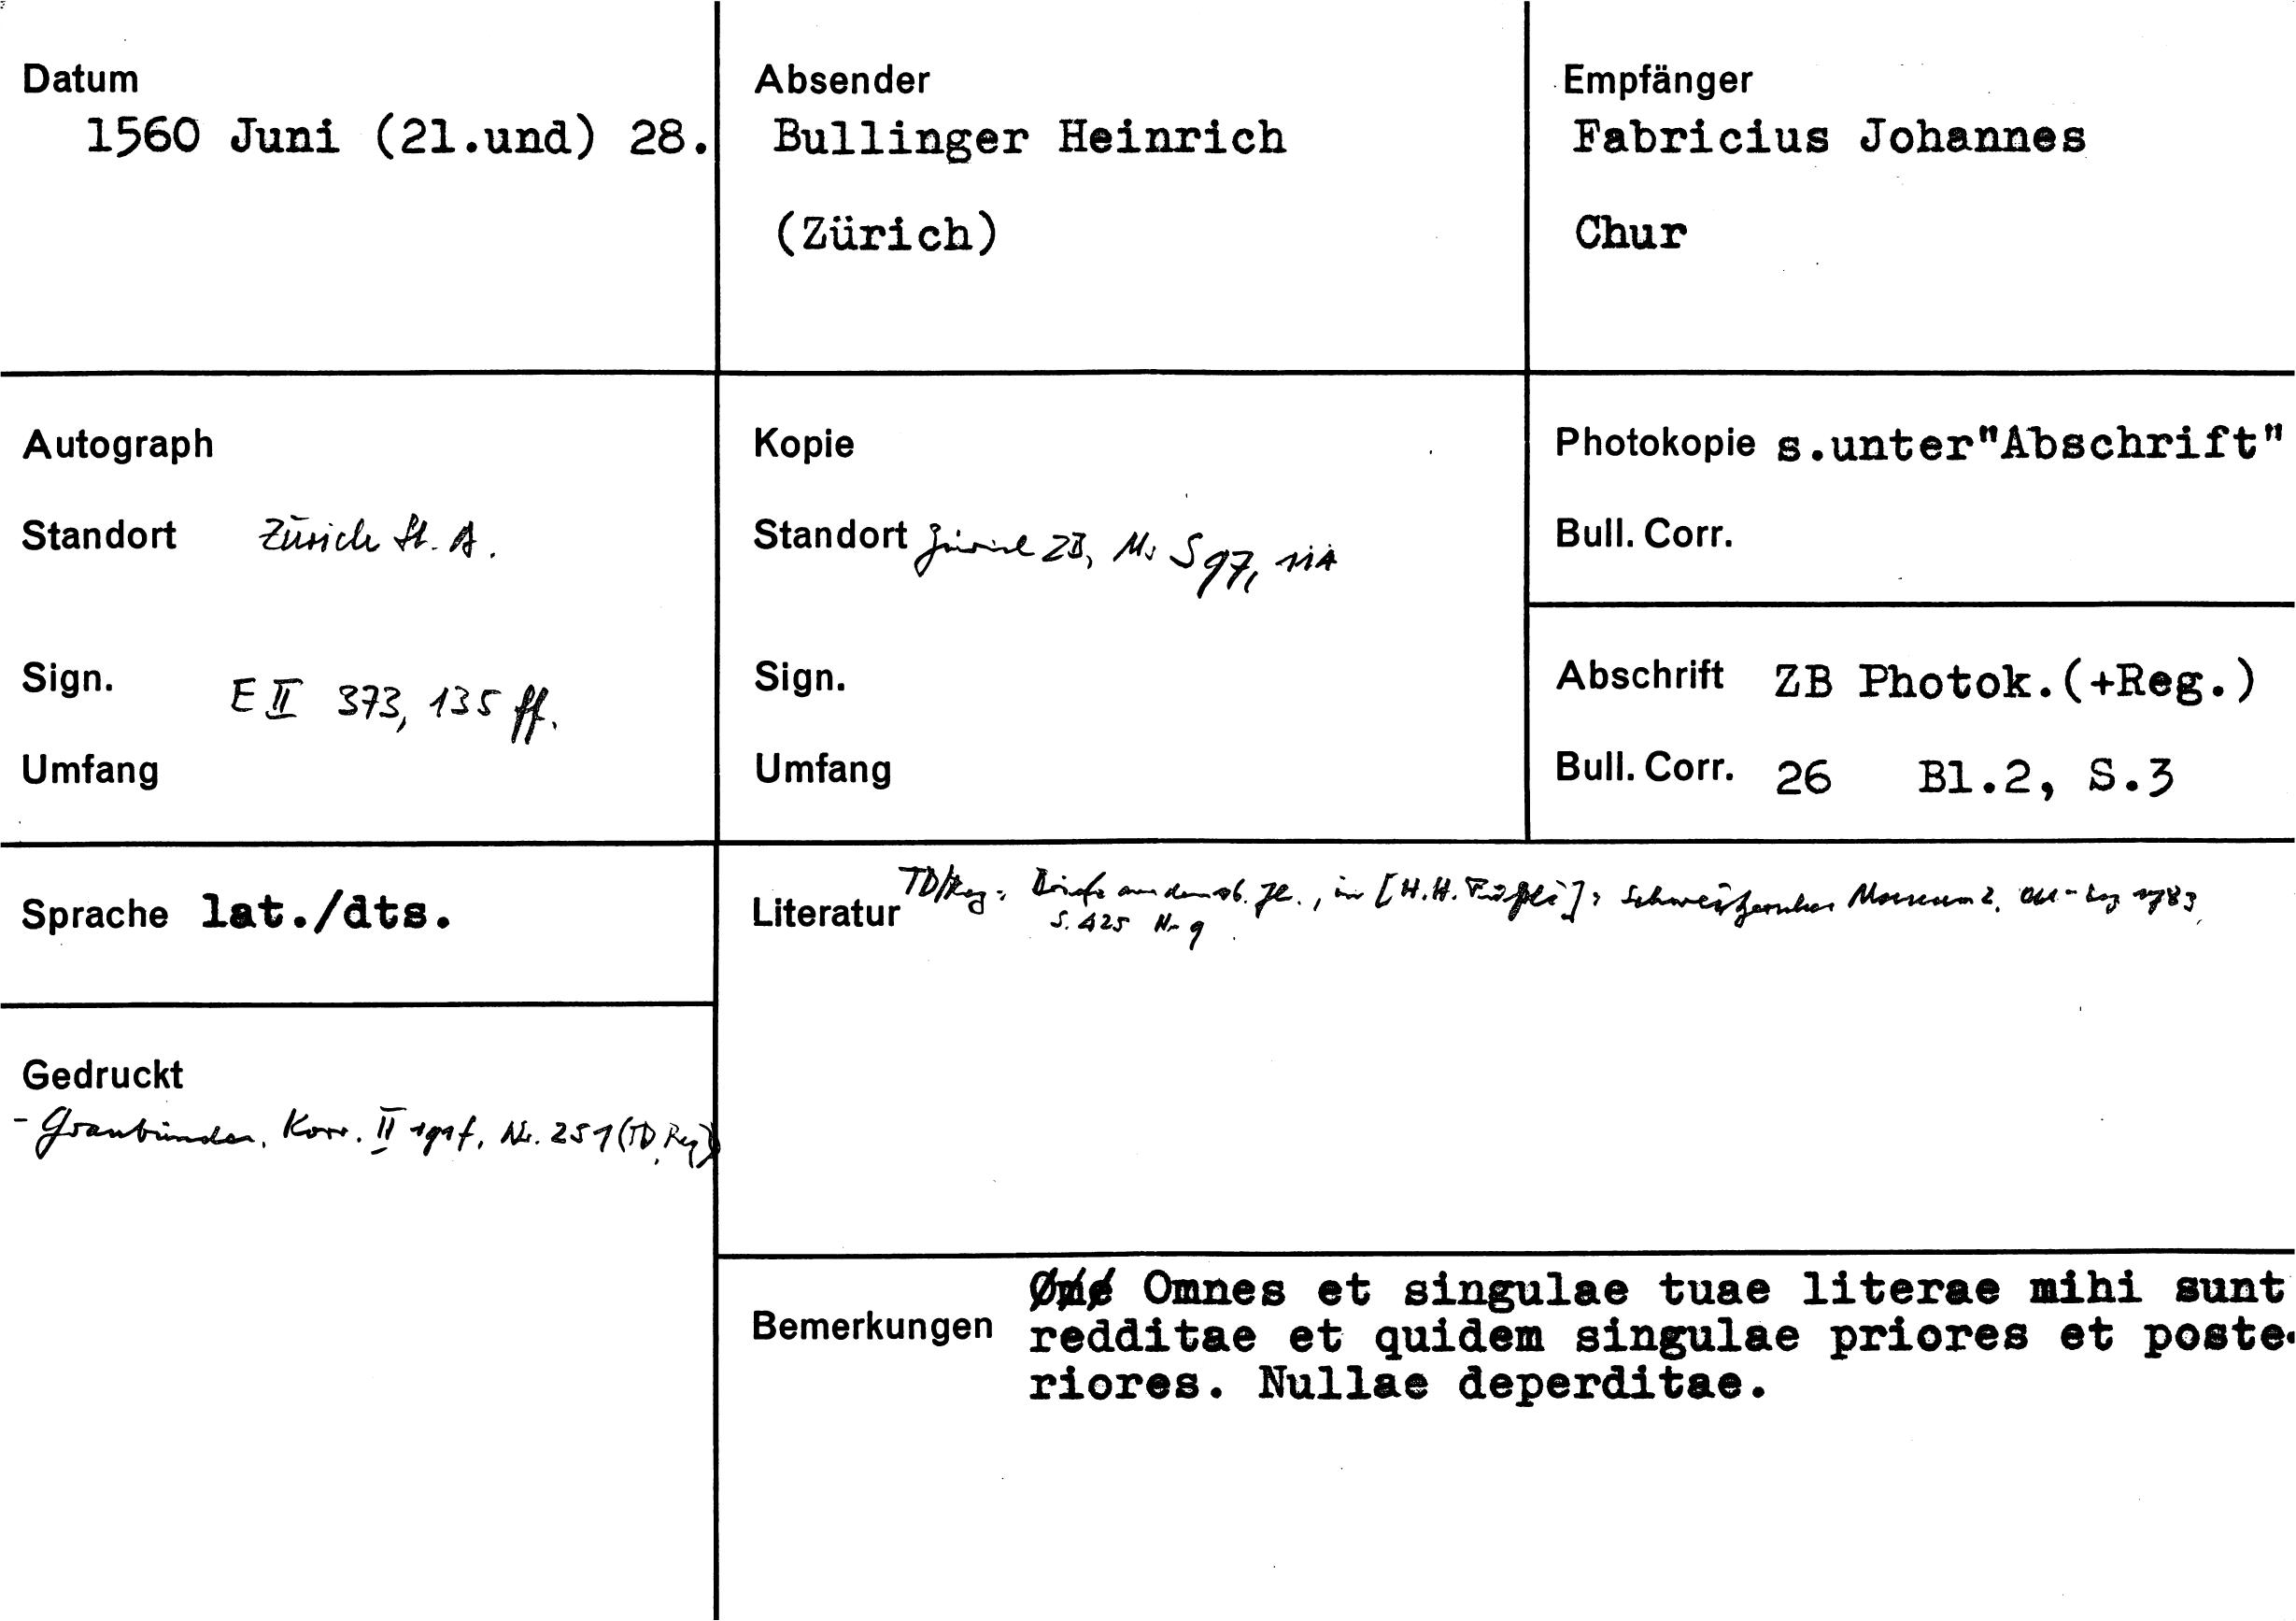 Datum
1560 Juni (21.und) 28.
Absender
Bullinger Heinrich
(Zürich)
Empfänger
Fabricius Johannes
Chur
Autograph
Standort Zürich St. A.
Sign. E II 373, 135 ff.
Umfang
Kopie
Standort Zürich ZB, Ms S 97, 114
Sign.
Umfang
Photokopie s.unter"Abschrift"
Bull. Corr.
Abschrift ZB Photok.(+Reg.)
Bull. Corr. 26 Bl.2, S.3
Sprache lat./dts.
Literatur TD/Reg: Briefe aus dem 16. Jh., in [H.H. Füßli]: Schweitzersches Museum 2, 1783,
S. 425 Nr 9
Gedruckt
- Graubünden, Korr. II 191f, Nr. 251 (TD, Reg)
Bemerkungen Omnes et singulae tuae literae mihi sunt
redditae et quidem singulae priores et poste-
riores. Nullae deperditae.